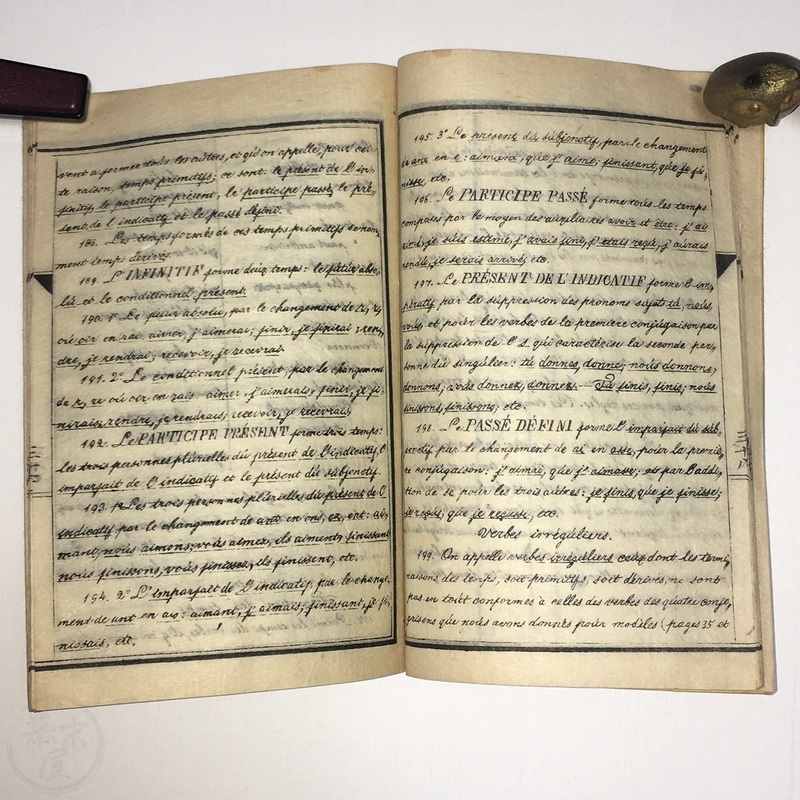 vent a former tous les autres, et qu'on appelle, pour cet-
te raison, temps primitifs; ce sont: le présent de l'in-
finitif, le participe présent, le participe passé, le pré-
sent de l'indicatif et le passé défini.
188. Les temps formés de ces temps primitifs se nom-
ment temps dérivés.
189. L'INFINITIF forme deux temps: le futur abso-
lu et le conditionnel présent.
190. 1° Le futur absolu, par le changement de r, re
où oir en rai: aimer, j'aimerai; finir, je finirai; ren-
dre, je rendrai; recevoir, je recevrai.
191. 2° Le conditionnel présent, par le changement
de r, re où oir en rais: aimer, j'aimerais; finir, je fi-
nirais; rendre, je rendrais; recevoir, je recevrais.
192. Le PARTICIPE PRÉSENT forme trois temps:
les trois personnes plurielles du présent de l'indicatif, l'
imparfait de l'indicatif et le présent du subjonctif.
193. 1° Les trois personnes plurielles du présent de l'
indicatif par le changement de ant en ons, ez, ent: ai-
mant, nous aimons, vous aimez, ils aiment; finissant
nous finissons, vous finissez, ils finissent, etc.
194. 2° L'imparfait de l'indicatif, par le change-
ment de ant en ais: aimant, j'aimais; finissant, je fi-
nissais, etc.
195. 3° Le présent du subjonctif, par le changement
de ant en e: aimant, que j'aime; finissant, que je fi-
nisse, etc.
196. Le PARTICIPE PASSÉ forme tous les temps
composés par le moyen des auxiliaires avoir et être: j'ai
aimé, je suis estimé, j'avais fini, j'étais reçu, j'aurais
rendu, je serais arrivé, etc.
197. Le PRÉSENT DE L'INDICATIF forme l'im-
pératif par la suppression des pronoms sujets tu, nous,
vous, et pour les verbes de la première conjugaison par
la suppression de l's qui caractérise la seconde per-
sonne du singulier: tu donnes, donne; nous donnons,
donnons; vous donnez, donnez. — Tu finis, finis; nous
finissons, finissons; etc.
198. Le PASSÉ DÉFINI forme l'imparfait du sub-
jonctif par le changement de ai en asse, pour la premiè-
re conjugaison: j'aimai, que j'aimasse; et par l'addi-
tion de se pour les trois autres: je finis, que je finisse;
je reçus, que je reçusse, etc.
Verbes irréguliers.
199. On appelle verbes irréguliers ceux dont les termi-
naisons des temps, soit primitifs, soit dérivés, ne sont
pas en tout conformes à celles des verbes des quatre conju-
gaisons que nous avons donnés pour modèles (pages 35 et